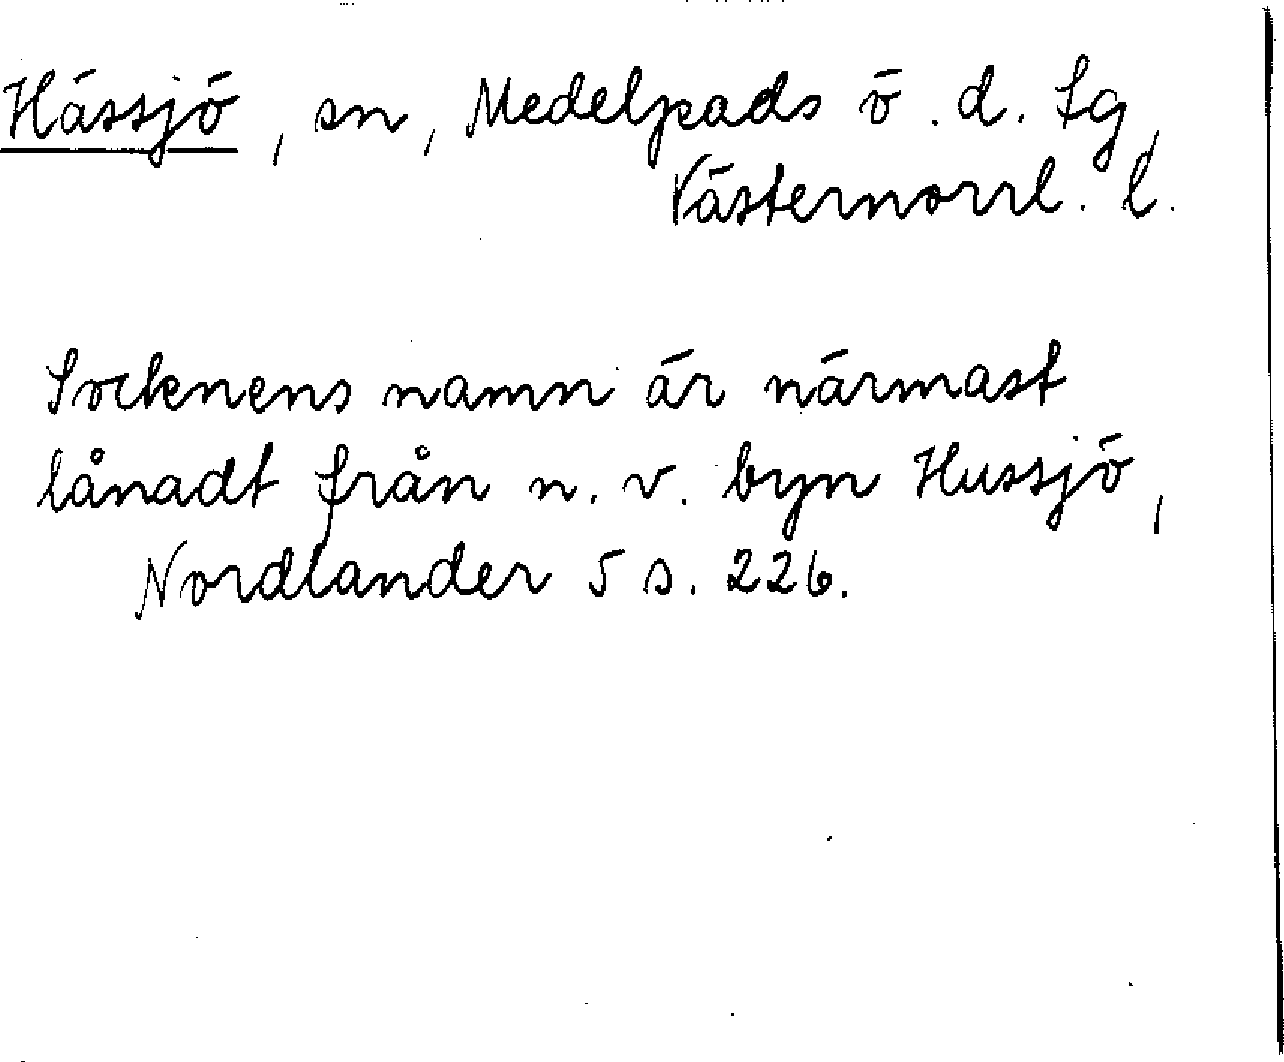 Hässjö, sn, Medelpads ö. d. tg,
Västernorrl. l.
Socknens namn är närmast
lånadt från n. v. byn Hussjö,
Nordlander 5 s. 226.